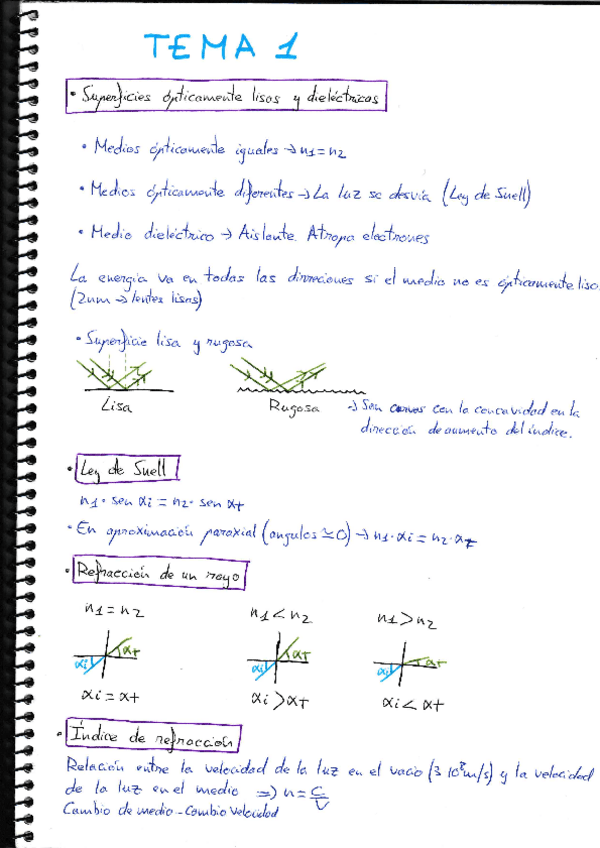 TEMA 1
• Superficies ópticamente lisas y dieléctricas
• Medios ópticamente iguales → n1 = n2
• Medios ópticamente diferentes → La luz se desvía (Ley de Snell)
• Medio dieléctrico → Aislante. Atrapa electrones
La energía va en todas las direcciones si el medio no es ópticamente liso
(2nm → lentes lisas)
• Superficie lisa y rugosa
Lisa
Rugosa
→ Son curvas con la concavidad en la
dirección de aumento del índice.
• Ley de Snell
n1 · sen αi = n2 · sen αt
• En aproximación paraxial (angulos ≃ 0) → n1 · αi = n2 · αt
• Refracción de un rayo
n1 = n2 n1 < n2 n1 > n2
αi αt αi αt αi αt
αi = αt αi > αt αi < αt
• Índice de refracción
Relación entre la velocidad de la luz en el vacío (3 10⁸ m/s) y la velocidad
de la luz en el medio => n = C/V
Cambio de medio - Cambio velocidad